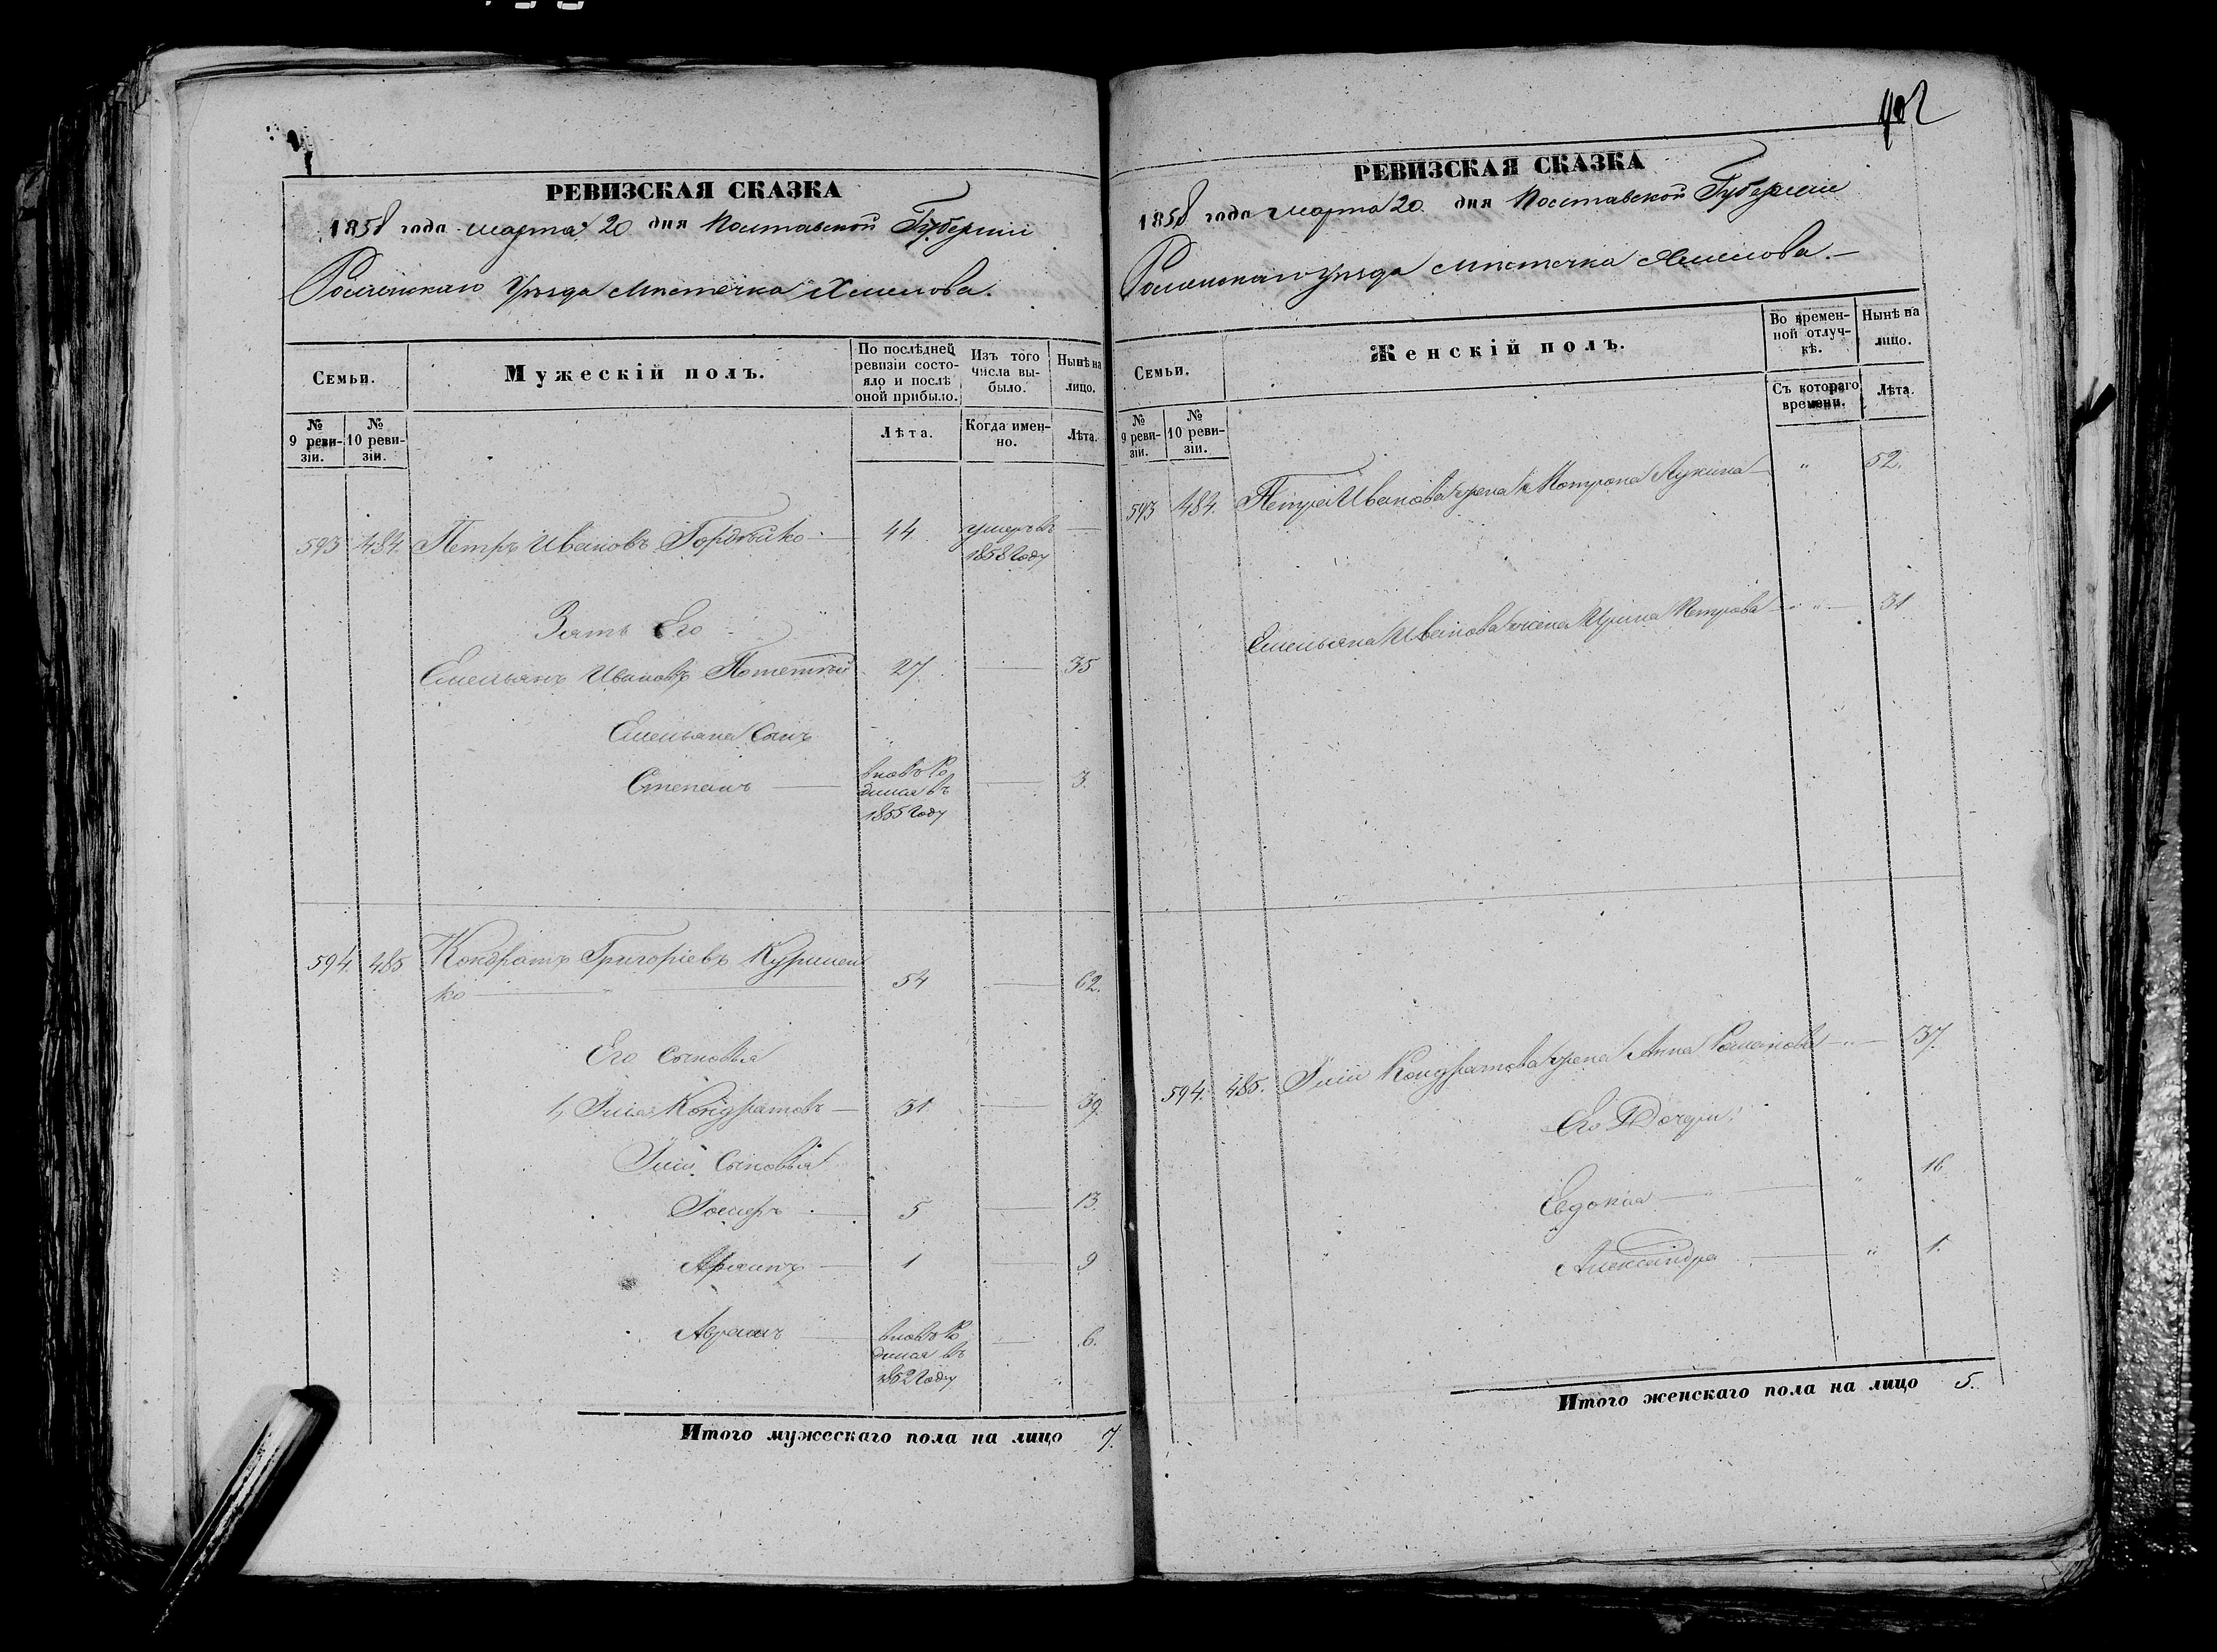 РЕВИЗСКАЯ СКАЗКА
1858 года марта 20 дня Полтавской Губернии
Роменскаго Уѣзда Мѣстечка Хмелова.
Семьи.
Мужескій полъ.
По послѣдней ревизіи состояло и послѣ оной прибыло.
Изъ того числа выбыло.
Нынѣ на лицо.
№ 9 ревизіи.
№ 10 ревизіи.
Лѣта.
Когда именно.
Лѣта.
593 484. Петръ Ивановъ Гордѣйко 44 умеръ въ
1858 Году
Зять Его
Емельянъ Ивановъ 27 35
Емельяна Сынъ
Степанъ вновь ро
дился въ 3.
1855 Году
594. 485 Кондратъ Григоріевъ Куримен
ко 54 62.
Его Сыновья
1, Кондратовъ 31 39.
Сыновья
5 13.
1 9
Аврамъ вновь ро
дился въ 6.
1852 Году
Итого мужескаго пола на лицо 7.
402
РЕВИЗСКАЯ СКАЗКА
1858 года марта 20 дня Полтавской Губерніи
Роменскаго Уѣзда Мѣстечка Хмелова.
Семьи.
Женскій полъ.
Во временной отлучкѣ.
Нынѣ на лицо.
№ 9 ревизіи.
№ 10 ревизіи.
Съ котораго времени.
Лѣта.
593 484. Петра Иванова жена Мотрона Лукина " 52.
Емельяна Иванова жена Ирина Петрова " 31
594. 485. Кондратова жена Анна Романова " 37.
Его Дочери:
Евдокія " 16
Александра " 1.
Итого женскаго пола на лицо 5.